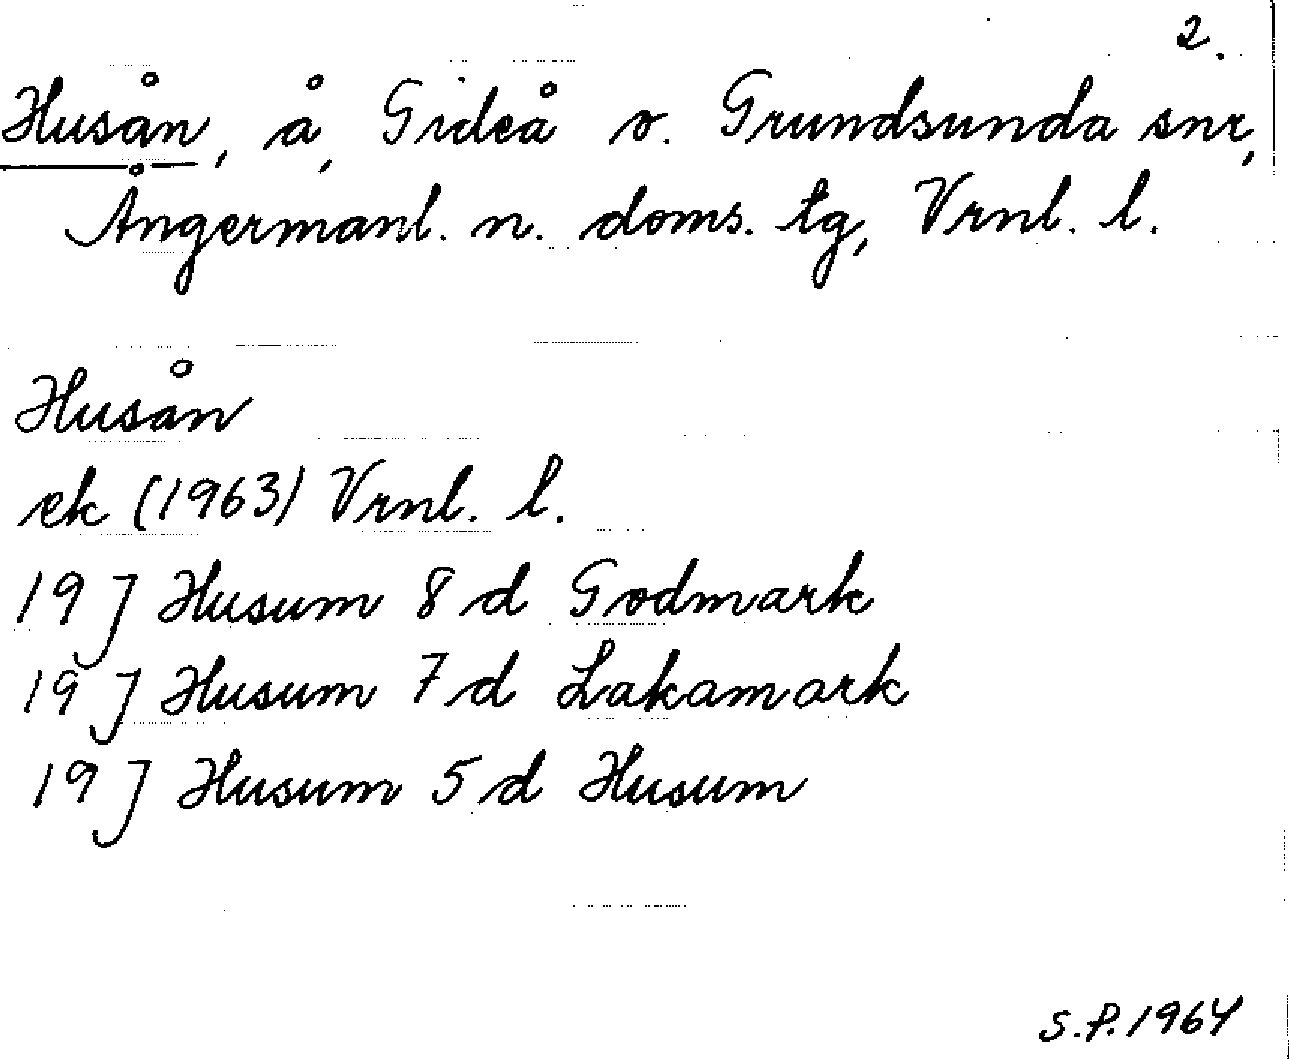 2.
Husån, å, Gideå o. Grundsunda snr,
Ångermanl. n. doms. tg, Vrnl. l.
Husån
ek (1963) Vrnl. l.
19 J Husum 8 d Godmark
19 J Husum 7 d Lakamark
19 J Husum 5 d Husum
S.P. 1964